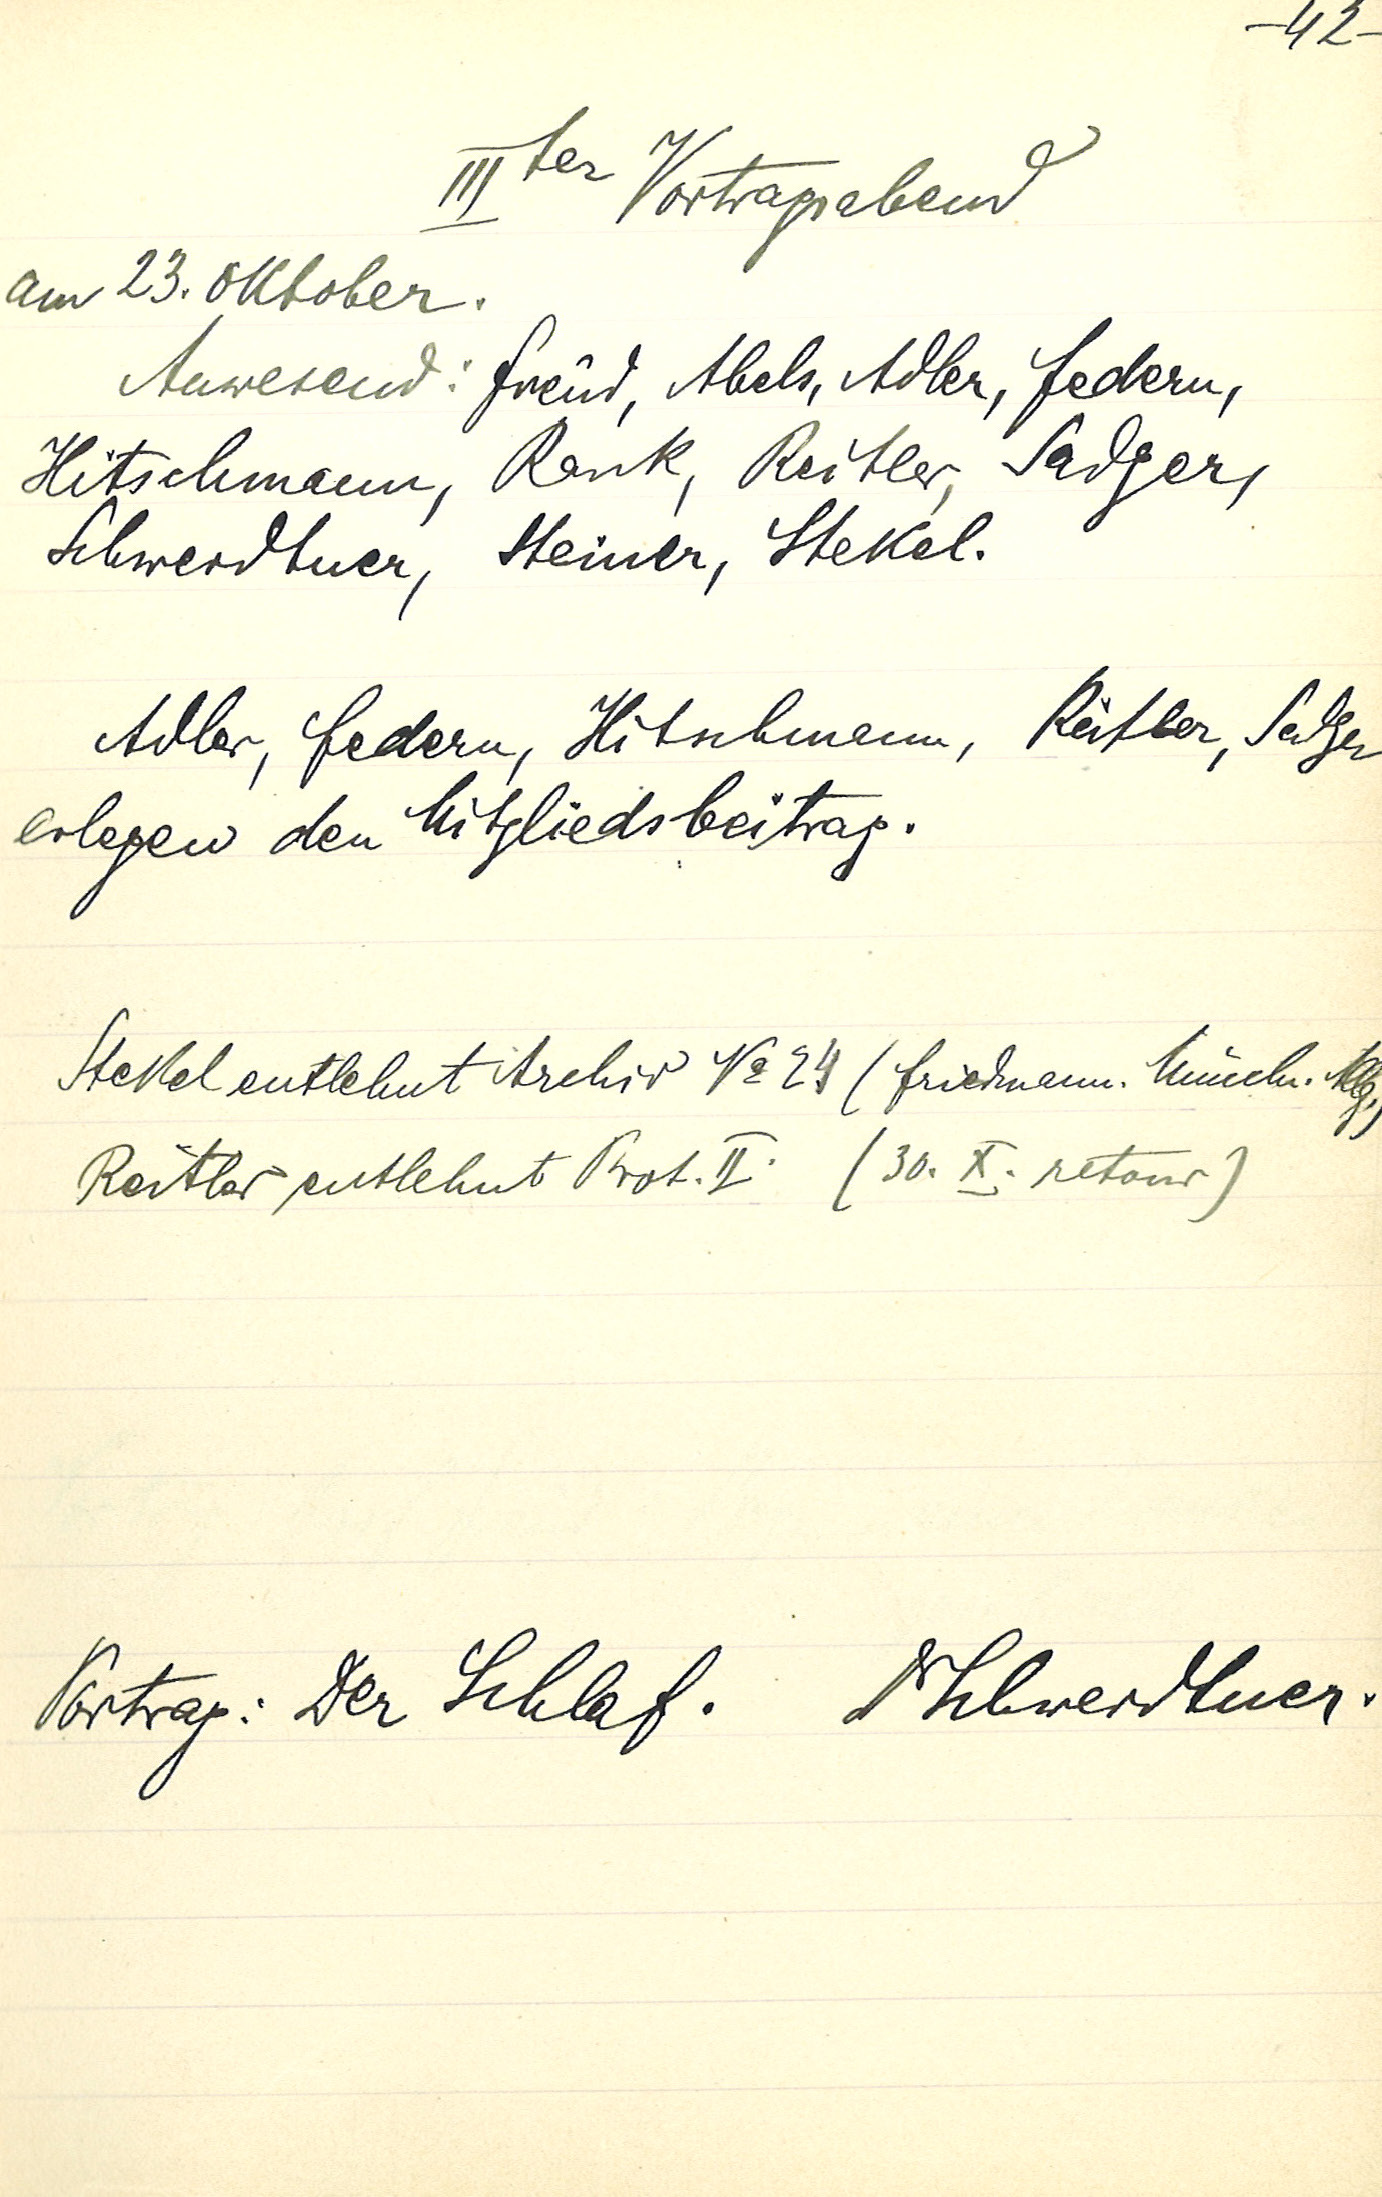 -42-
III ter Vortragsabend
am 23. Oktober.
Anwesend: Freud, Abels, Adler, Federn,
Hitschmann, Rank, Reitler, Sadger,
Schwerdtner, Steiner, Stekel.
Adler, Federn, Hitschmann, Reitler, Sadger
erlegen den Mitgliedsbeitrag.
Stekel entlehnt Archiv No 24 (Friedmann. Münch. Allg.)
Reitler entlehnt Prot. II. (30. X. retour)
Vortrag: Der Schlaf. Dr Schwerdtner.